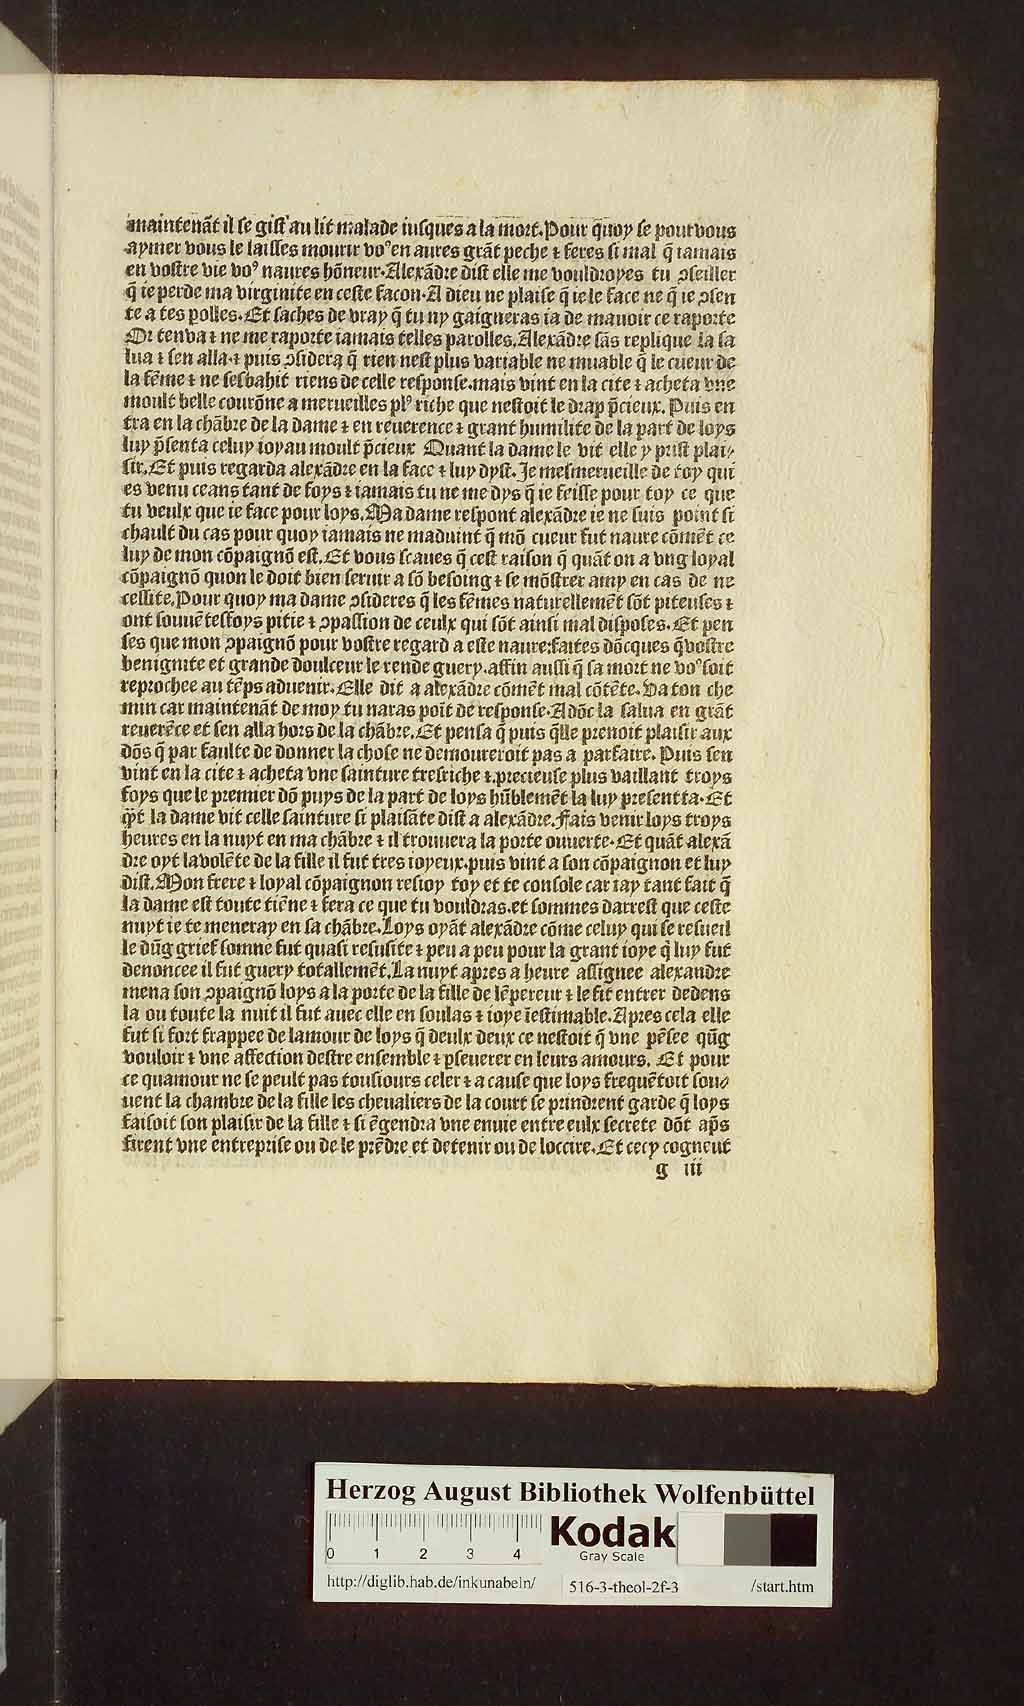 maintenāt il se gist au lit malade iusques a la mort. Pour quoy se pour vous
aymer vous le laisses mourir voꝰ en aures grāt peche ⁊ feres si mal q̄ iamais
en vostre vie voꝰ naures hōneur. Alexādre dist elle me vouldroyes tu ↄseiller
q̄ ie perde ma virginite en ceste facon. A dieu ne plaise q̄ ie le face ne q̄ ie ↄsen
te a tes polles. Et saches de vray q̄ tu ny gaigneras ia de mauoir ce raporte
Or tenva ⁊ ne me raporte iamais telles parolles. Alexādre sās replique la sa
lua ⁊ sen alla. ⁊ puis ↄsidera q̄ rien nest plus variable ne muable q̄ le cueur de
la fēme ⁊ ne sesbahit riens de celle response. mais vint en la cite ⁊ acheta vne
moult belle courōne a merueilles plꝰ riche que nestoit le drap p̄cieux. Puis en
tra en la chābre de la dame ⁊ en reuerence ⁊ grant humilite de la part de loys
luy p̄senta celuy ioyau moult p̄cieux Quant la dame le vit elle y prist plai⸗
sir. Et puis regarda alexādre en la face ⁊ luy dyst. Je mesmerueille de toy qui
es venu ceans tant de foys ⁊ iamais tu ne me dys q̄ ie feisse pour toy ce que
tu veulx que ie face pour loys. Ma dame respont alexādre ie ne suis point si
chault du cas pour quoy iamais ne maduint q̄ mō cueur fut naure cōmēt ce
luy de mon cōpaignō est. Et vous scaues q̄ cest raison q̄ quāt on a vng loyal
cōpaignō quon le doit bien seruir a sō besoing ⁊ se mōstrer amy en cas de ne
cessite. Pour quoy ma dame ↄsideres q̄ les fēmes naturellemēt sōt piteuses ⁊
ont souuētesfoys pitie ⁊ ↄpassion de ceulx qui sōt ainsi mal disposes. Et pen
ses que mon ↄpaignō pour vostre regard a este naure: faites dōcques q̄vostre
benignite et grande doulceur le rende guery. affin aussi q̄ sa mort ne voꝰ soit
reprochee au tēps aduenir. Elle dit a alexādre cōmēt mal cōtēte. Va ton che
min car maintenāt de moy tu naras poīt de response. Adōc la salua en grāt
reuerēce et sen alla hors de la chābre. Et pensa q̄ puis q̄lle prenoit plaisir aux
dōs q̄ par faulte de donner la chose ne demoureroit pas a parfaire. Puis sen
vint en la cite ⁊ acheta vne sainture tresriche ⁊. precieuse plus vaillant troys
foys que le premier dō puys de la part de loys hūblemēt la luy presentta. Et
q̄t la dame vit celle sainture si plaisāte dist a alexādre. Fais venir loys troys
heures en la nuyt en ma chābre ⁊ il trouuera la porte ouuerte. Et quāt alexā
dre oyt lavolēte de la fille il fut tres ioyeux. puis vint a son cōpaignon et luy
dist. Mon frere ⁊ loyal cōpaignon resioy toy et te console car iay tant fait q̄
la dame est toute tiēne ⁊ fera ce que tu vouldras. et sommes darrest que ceste
nuyt ie te meneray en sa chābre. Loys oyāt alexādre cōme celuy qui se resueil
le dūg grief somne fut quasi resusite ⁊ peu a peu pour la grant ioye q̄ luy fut
denoncee il fut guery totallemēt. La nuyt apres a heure assignee alexandre
mena son ↄpaignō loys a la porte de la fille de lēpereur ⁊ le fit entrer dedens
la ou toute la nuit il fut auec elle en soulas ⁊ ioye īestimable. Apres cela elle
fut si fort frappee de lamour de loys q̄ deulx deux ce nestoit q̄ vne pēsee qūg
vouloir ⁊ vne affection destre ensemble ⁊ ꝑseuerer en leurs amours. Et pour
ce quamour ne se peult pas tousiours celer ⁊ a cause que loys frequētoit sou⸗
uent la chambre de la fille les cheualiers de la court se prindrent garde q̄ loys
faisoit son plaisir de la fille ⁊ si ēgendra vne enuie entre eulx secrete dōt ap̄s
firent vne entreprise ou de le prēdre et detenir ou de loccire. Et cecy cogneut
g iii
Herzog August Bibliothek Wolfenbüttel
0 1 2 3 4
Kodak
Gray Scale
http://diglib.hab.de/inkunabeln/ 516-3-theol-2f-3 /start.htm